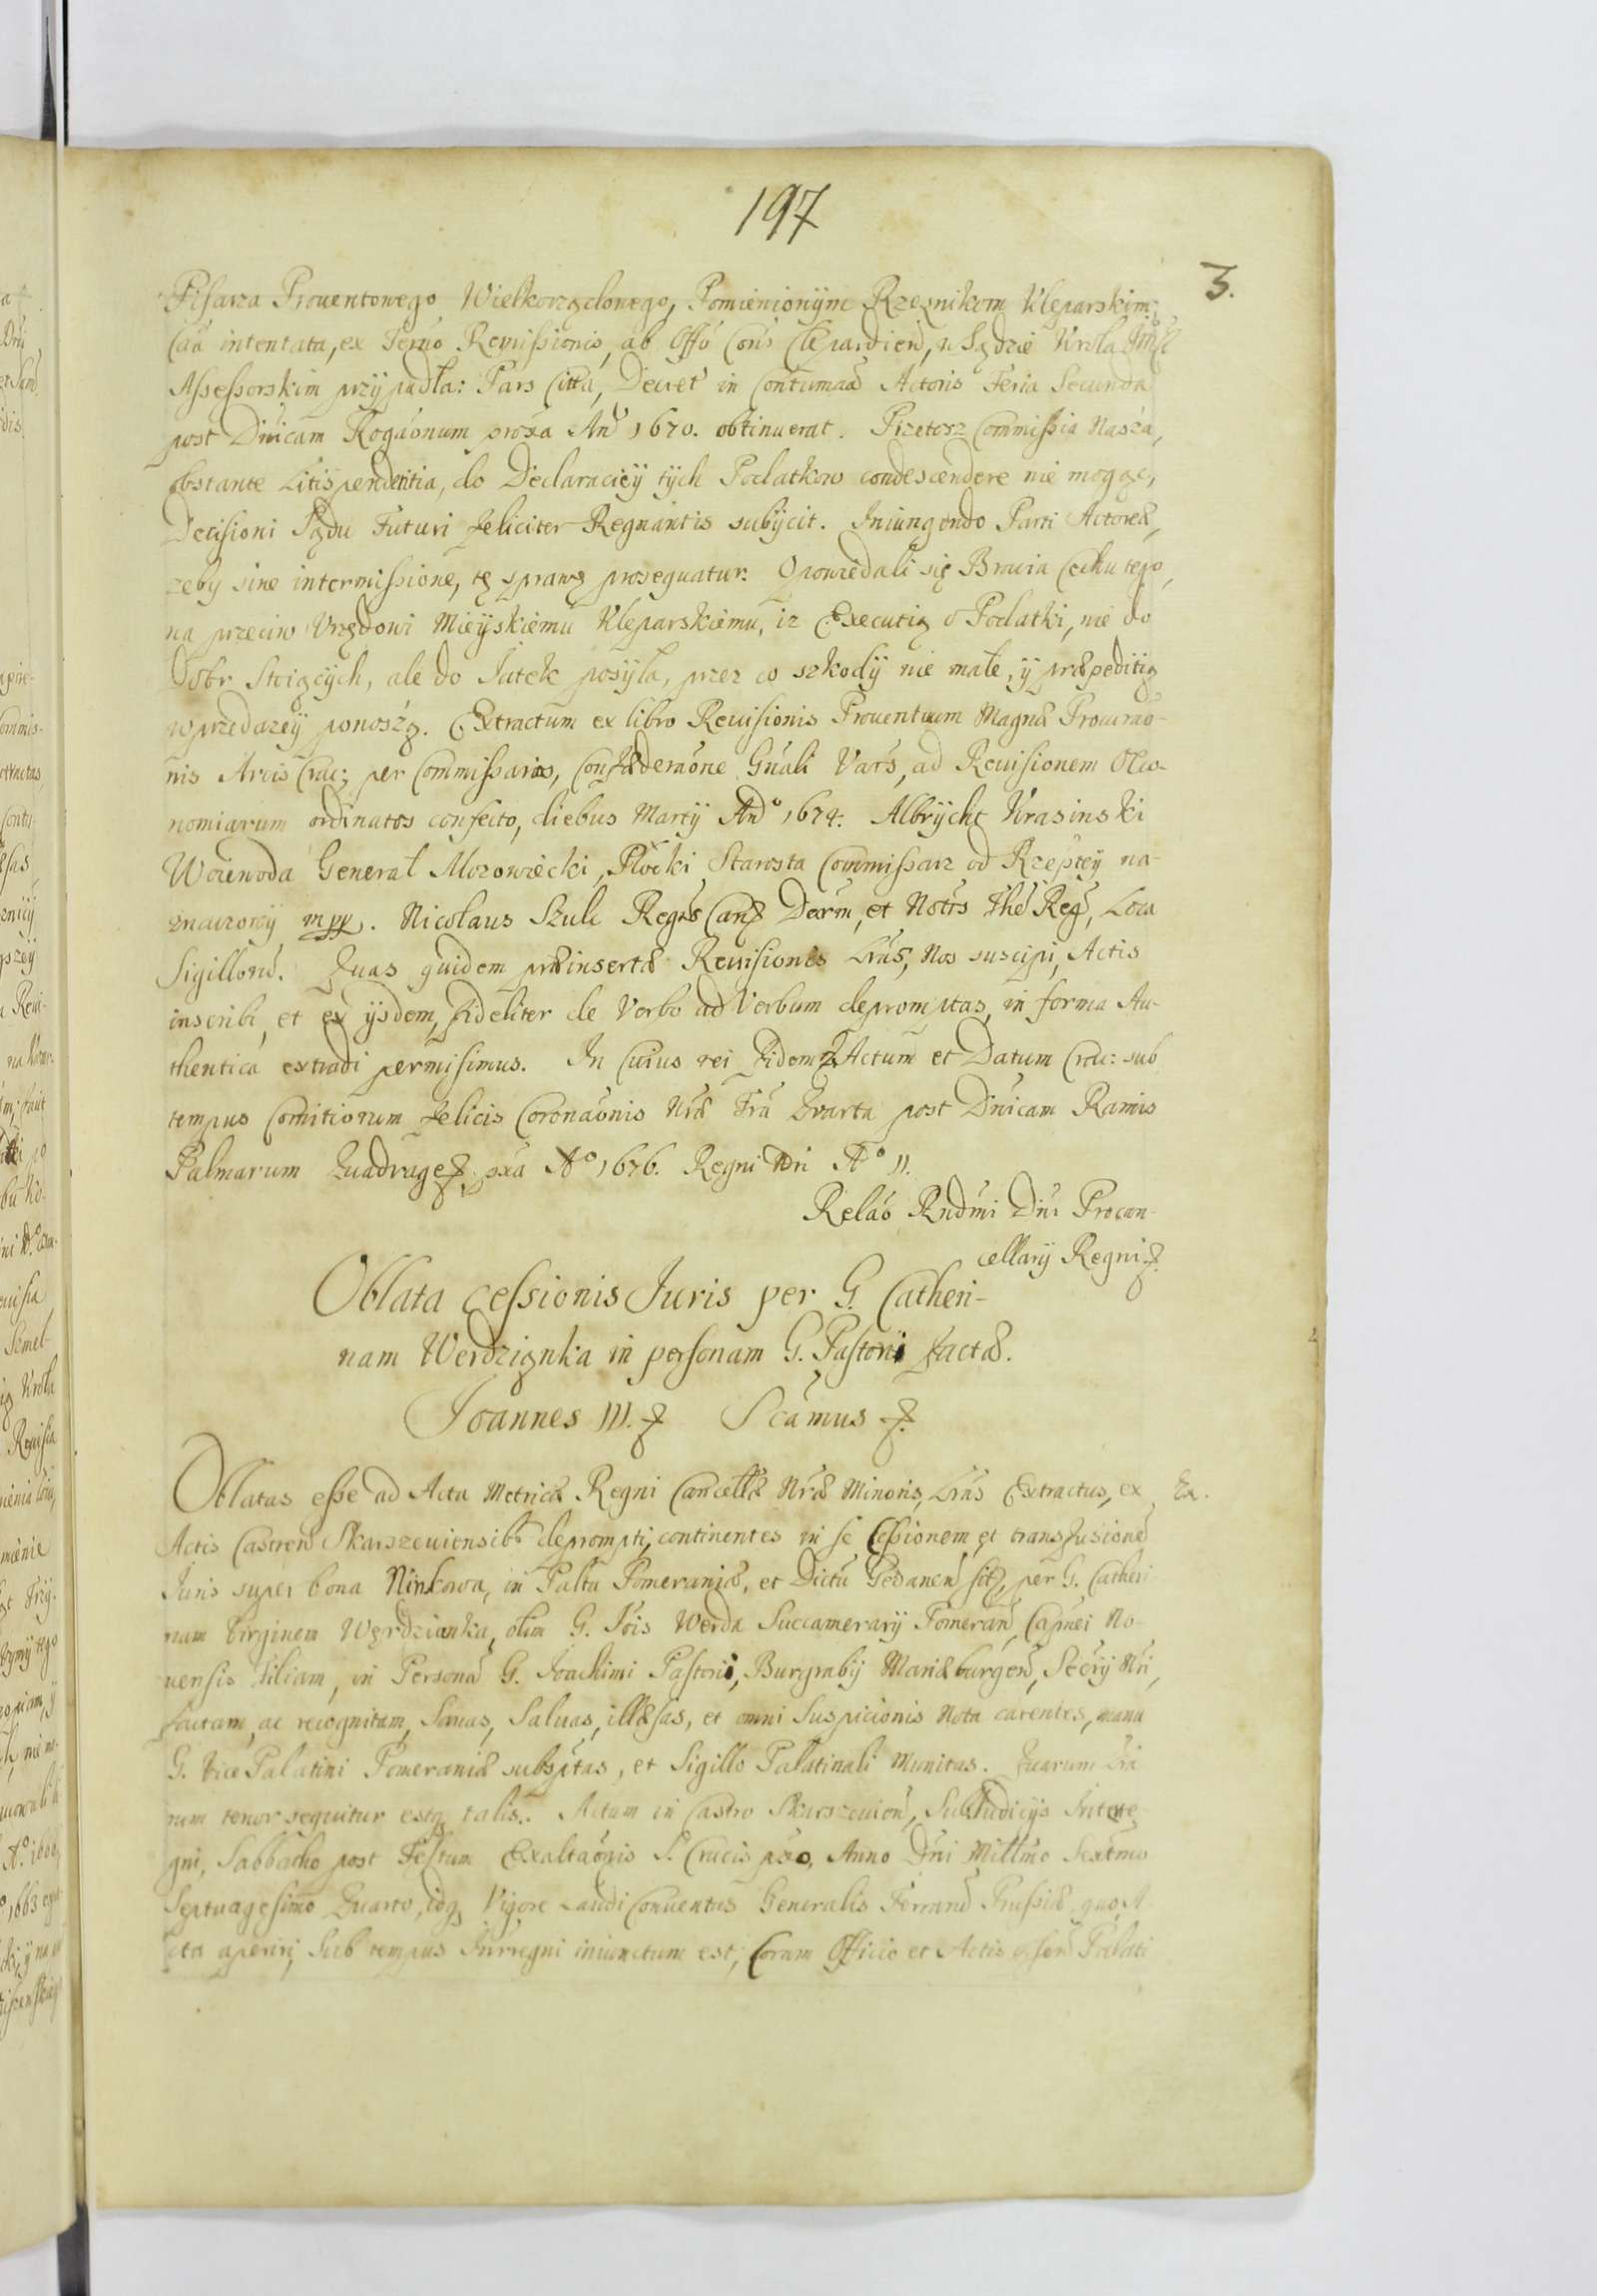 197
3.
Pisarza Prouentowego Wielkorządowego, Pomienionym Rzeznikom Kleparskim,
Caã intentata, ex Termo Remissionis, ab Offo Cons Clepardień, u Sądzie Krola Jmści
Assessorskim przypadła: Pars Citta, Decret in Contumaã Actoris Feria Secunda
post Dnicam Rogaonum proxa And 1670. obtinuerat. Przetosz Commissia Nasza,
Obstante Litispendentia, do Declaraciey tych Podatkow condescendere nie mogąc,
Decisioni Sądu Futuri feliciter Regnantis subijcit. Iniungendo Parti Actoreæ,
zeby sine intermissione, tę sprawę prosequatur. Opowiedali się Bracia Cechu tego,
na przeciw Vrzędowi Mieyskiemu Kleparskiemu, iz Executią o Podatki, nie do
Dobr Stoiących, ale do Jatek posyła, przez co szkody nie małe, y præpeditią
w przedazey ponoszą. Extractum ex libro Reuisionis Prouentuum Magnæ Procurao-
nis Arcis Crac: per Commissarios, Confæderaone Gnali Vars, ad Reuisionem Oeco-
nomiarum ordinatos confecto, diebus Martij Ado 1674. Albrycht Krasinski
Woiewoda Generał Mazowiecki, Płocki Starosta Commissarz od Rzeptey na-
znaczony mpp. Nicolaus Szulc Regs Canc Decrm, et Notrs Thes Reg, Loca
Sigillorũ. Quas quidem præinsertæ Reuisionis Lras, Nos suscipi, Actis
inscribi, et ex ijsdem, fideliter de Verbo ad Verbum depromptas, in forma Au-
thentica extradi permisimus. In Cuius rei fidem Actum et Datum Crac: sub
tempus Comitiorum felicis Coronaonis Nræ Fra Quarta post Dnicam Ramis
Palmarum Quadrages. pxa Ao 1676. Regni Nri Ao II.
Relao Rndmi Dni Procan-
cellarij Regni
Oblata cessionis Juris per G. Catheri-
nam Werdzianka in personam G. Pastorii factæ.
Joannes III. Scamus
Oblatas esse ad Acta Metricæ Regni Cancellæ Nræ Minoris, Lras Extractus, ex
Ex.
Actis Castreñ Skarszeuiensib depromti, continentes in se Cessionem et transfusionẽ
Juris super bona Ninkowa, in Paltu Pomeraniæ, et Dictu Gedaneñ sit, per G. Catheri
nam Virginem Werdzianka, olim G. Jois Werda Succamerarij Pomerañ, Capnei No-
uensis filiam, in Personã G. Joachimi Pastorii, Burgrabij Mariæburgeñ, Secrij Nri,
factam, ac recognitam, Sanas, Saluas, illæsas, et omni Suspicionis Nota carentes, manu
G. Vice Palatini Pomeraniæ subsptas, et Sigillo Palatinali Munitas. Quarum Lra
rum tenor sequitur estq talis. Actum in Castro Skarszeuieñ, Sub Judicijs Interre-
gni, Sabbatho post Festum Exaltaonis S. Crucis pxo, Anno Dni Millmo Sextmo
Septuagesimo Quarto, idq Vigore Laudi Conuentus Generalis Terrarũ Prussiæ, quo A
cta aperiri, Sub tempus Inrregni iniunctum est, Coram Officio et Actis Palati